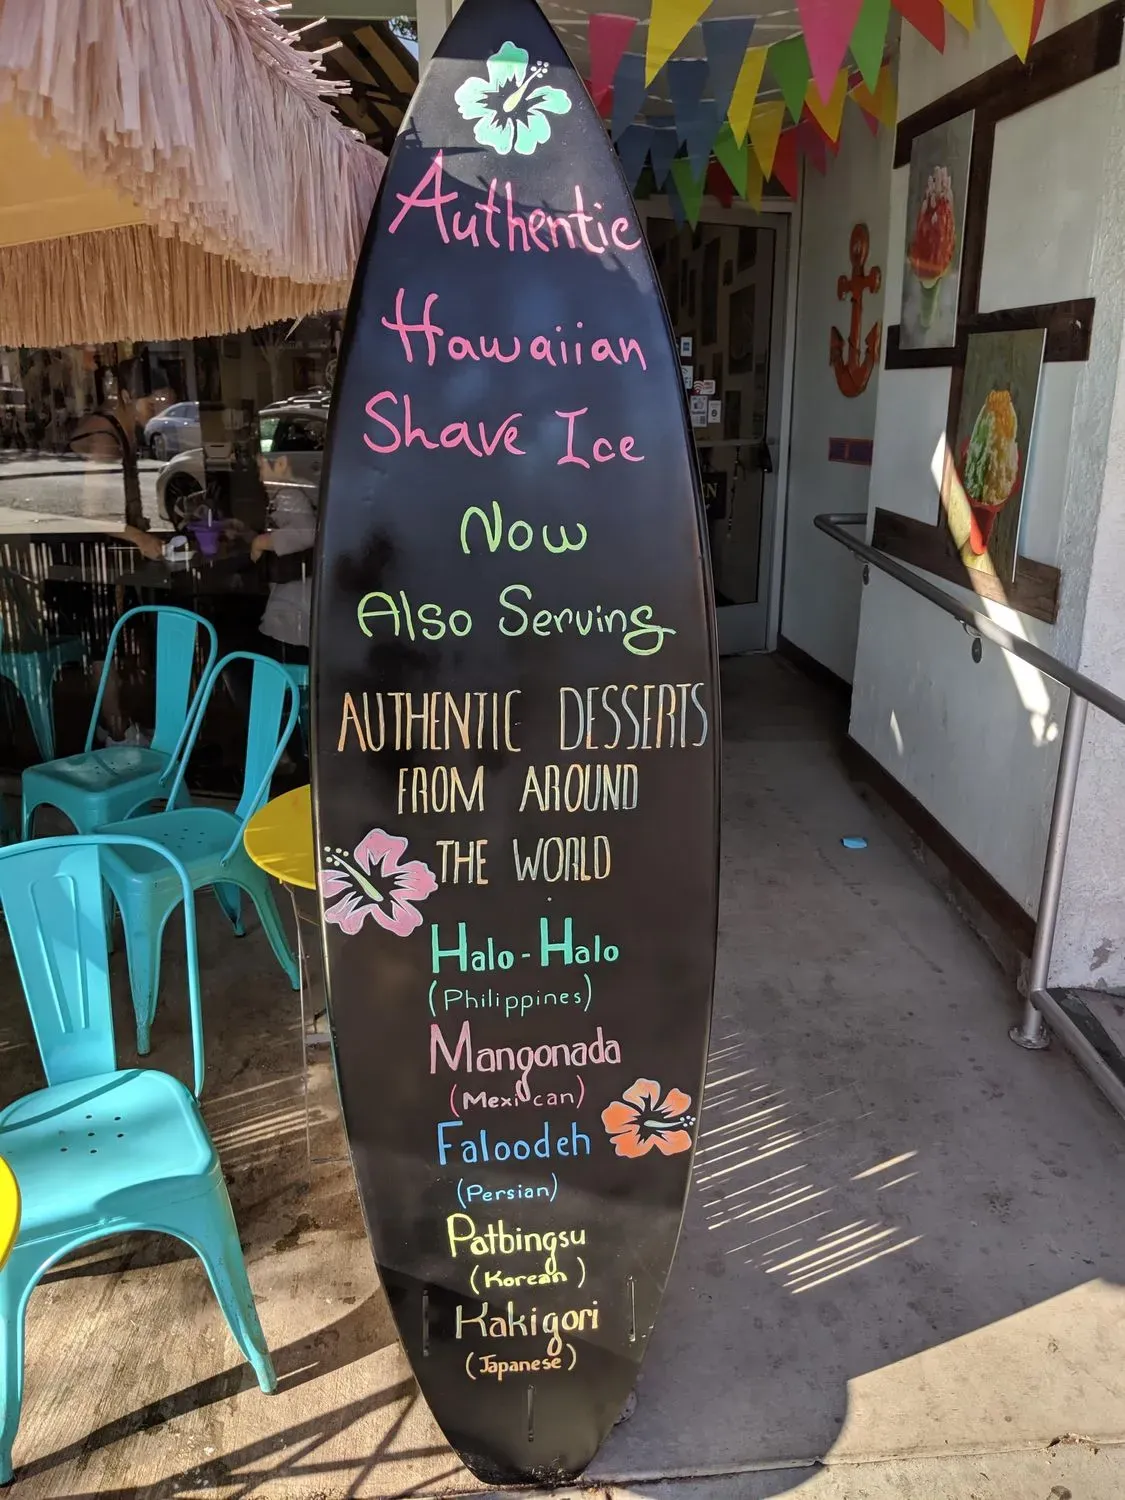 Authentic
Hawaiian
Shave Ice
Now
Also Serving
AUTHENTIC DESSERTS
FROM AROUND
THE WORLD
Halo-Halo
(Philippines)
Mangonada
(Mexican)
Faloodeh
(Persian)
Patbingsu
(Korean)
Kakigori
(Japanese)